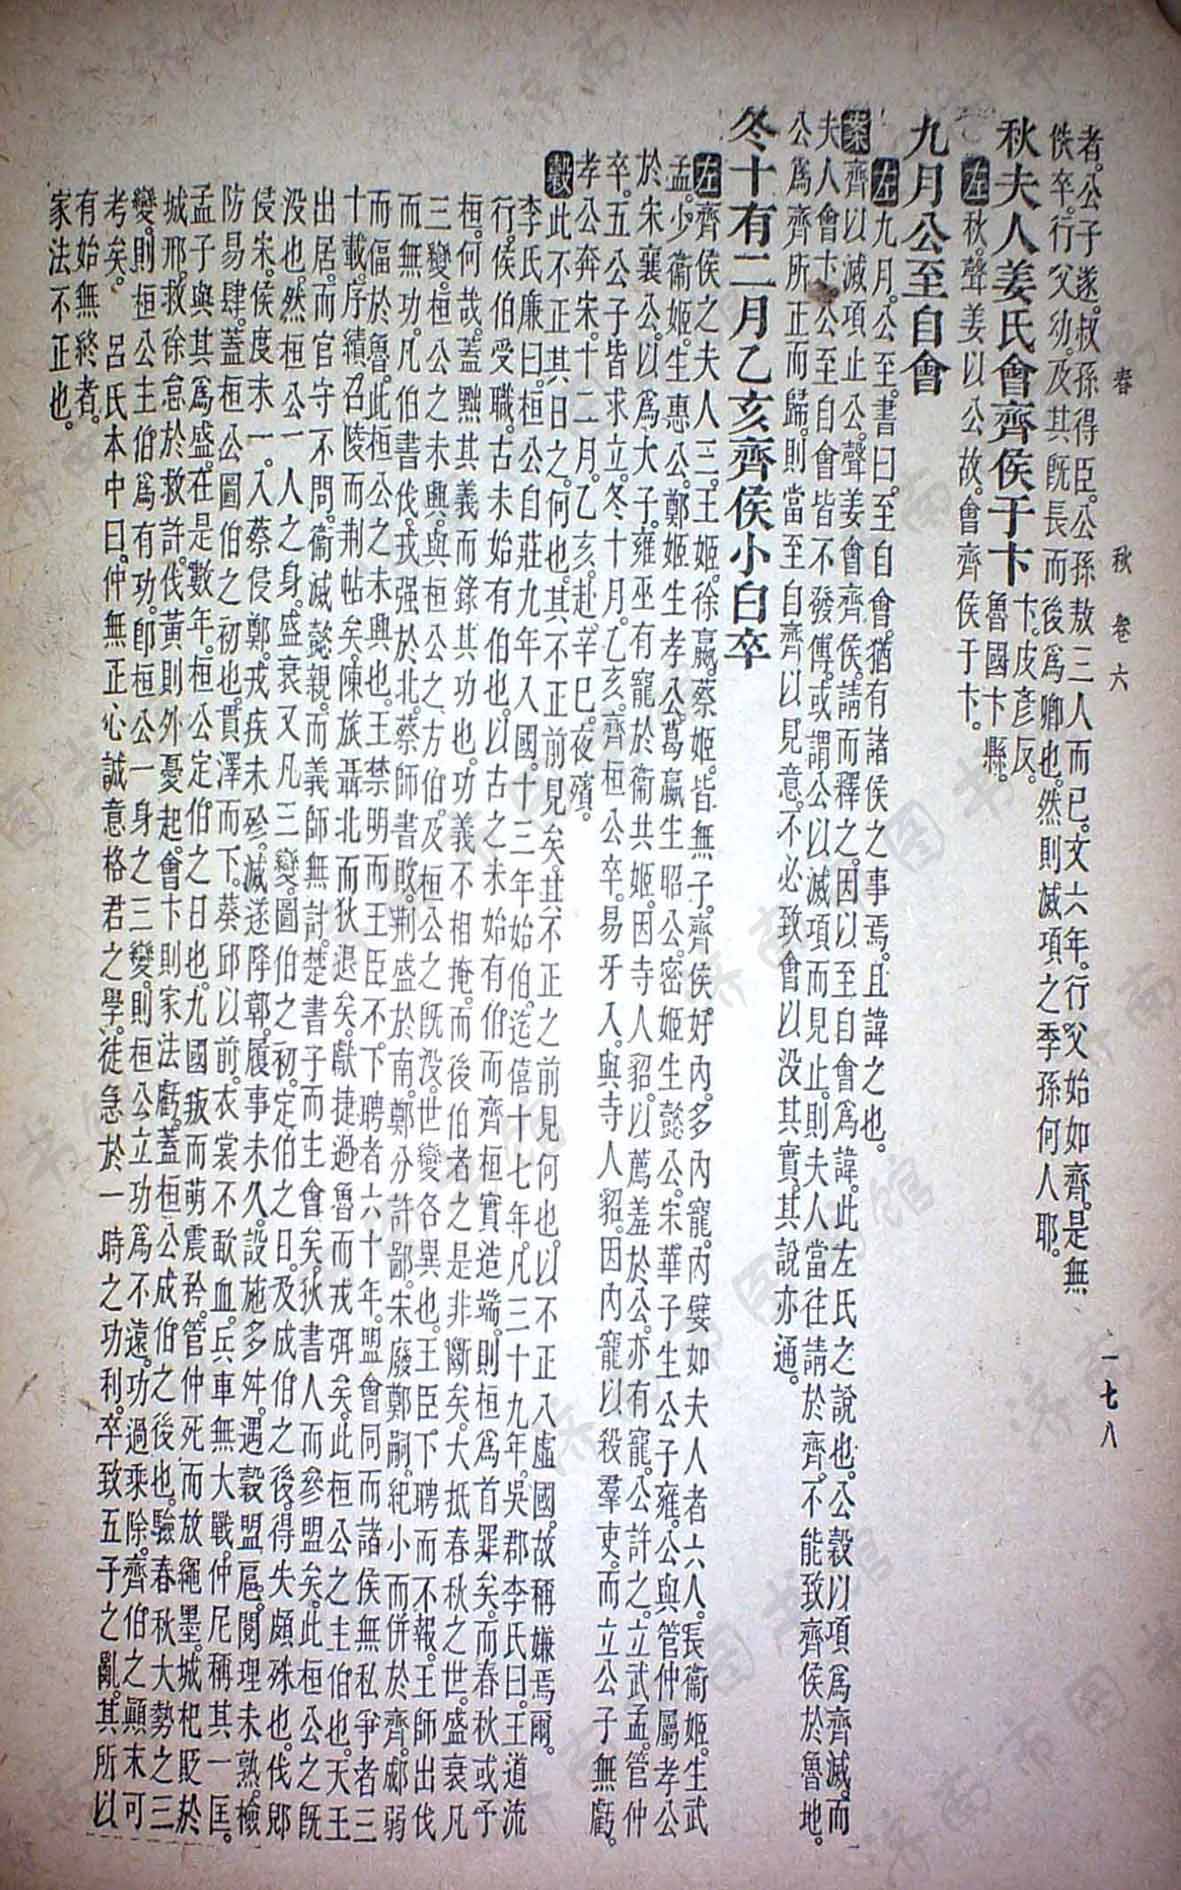 春秋 卷六 一七八
者。公子遂。叔孫得臣。公孫敖三人而已。文六年。行父始如齊。是無
佚卒。行父幼。及其旣長而後爲卿也。然則滅項之季孫何人耶。
秋夫人姜氏會齊侯于卞 卞。皮彥反。魯國卞縣。
左秋。聲姜以公故。會齊侯于卞。
九月公至自會
左九月。公至。書曰。至自會。猶有諸侯之事焉。且諱之也。
案齊以滅項止公。聲姜會齊侯。請而釋之。因以至自會爲諱。此左氏之說也。公穀以項爲齊滅。而
夫人會卞。公至自會皆不發傳。或謂公以滅項而見止。則夫人當往請於齊。不能致齊侯於魯地。
公爲齊所正而歸。則當至自齊以見意。不必致會以没其實。其說亦通。
冬十有二月乙亥齊侯小白卒
左齊侯之夫人三。王姬。徐嬴。蔡姬。皆無子。齊侯好內。多內寵。內嬖如夫人者六人。長衞姬。生武
孟。少衞姬。生惠公。鄭姬生孝公。葛嬴生昭公。密姬生懿公。宋華子生公子雍。公與管仲屬孝公
於宋襄公。以爲大子。雍巫有寵於衞共姬。因寺人貂。以薦羞於公。亦有寵。公許之。立武孟。管仲
卒。五公子皆求立。冬十月。乙亥。齊桓公卒。易牙入。與寺人貂。因內寵以殺羣吏。而立公子無虧。
孝公奔宋。十二月。乙亥。赴。辛巳。夜殯。
穀此不正。其日之。何也。其不正前見矣。其不正之前見何也。以不正入虛國。故稱嫌焉爾。
李氏廉曰。桓公自莊九年入國。十三年始伯。迄僖十七年。凡三十九年。吳郡李氏曰。王道流
行。侯伯受職。古未始有伯也。以古之未始有伯。而齊桓實造端。則桓爲首罪矣。而春秋或予
桓。何哉。蓋黜其義而錄其功也。功義不相掩。而後伯者之是非斷矣。大抵春秋之世。盛衰凡
三變。桓公之未興。與桓公之方伯。及桓公之旣没。世變各異也。王臣下聘而不報。王師出伐
而無功。凡伯書伐。戎强於北。蔡師書敗。荆盛於南。鄭分許鄙。宋廢鄭嗣。紀小而併於齊。郕弱
而偪於魯。此桓公之未興也。王禁明而王臣不下聘者六十年。盟會同而諸侯無私爭者三
十載。序績召陵而荆帖矣。陳旅聶北而狄退矣。獻捷過魯而戎弭矣。此桓公之主伯也。天王
出居。而官守不問。衞滅懿親。而義師無討。楚書子而主會矣。狄書人而參盟矣。此桓公之旣
没也。然桓公一人之身。盛衰又凡三變。圖伯之初。定伯之日。及成伯之後。得失頗殊也。伐郳
侵宋。侯度未一。入蔡侵鄭。戎疾未殄。滅遂降鄣。履事未久。設施多舛。遇穀盟扈。閱理未熟。檢
防易肆。蓋桓公圖伯之初也。貫澤而下。葵邱以前。衣裳不歃血。兵車無大戰。仲尼稱其一匡。
孟子與其爲盛。在是數年。桓公定伯之日也。九國叛而萌震矜。管仲死而放繩墨。城杞貶於
城邢。救徐怠於救許。伐黃則外憂起。會卞則家法虧。蓋桓公成伯之後也。驗春秋大勢之三
變。則桓公主伯爲有功。卽桓公一身之三變。則桓公立功爲不遠。功過乘除。齊伯之顚末可
考矣。呂氏本中曰。仲無正心誠意格君之學。徒急於一時之功利。卒致五子之亂。其所以
有始無終者。
家法不正也。